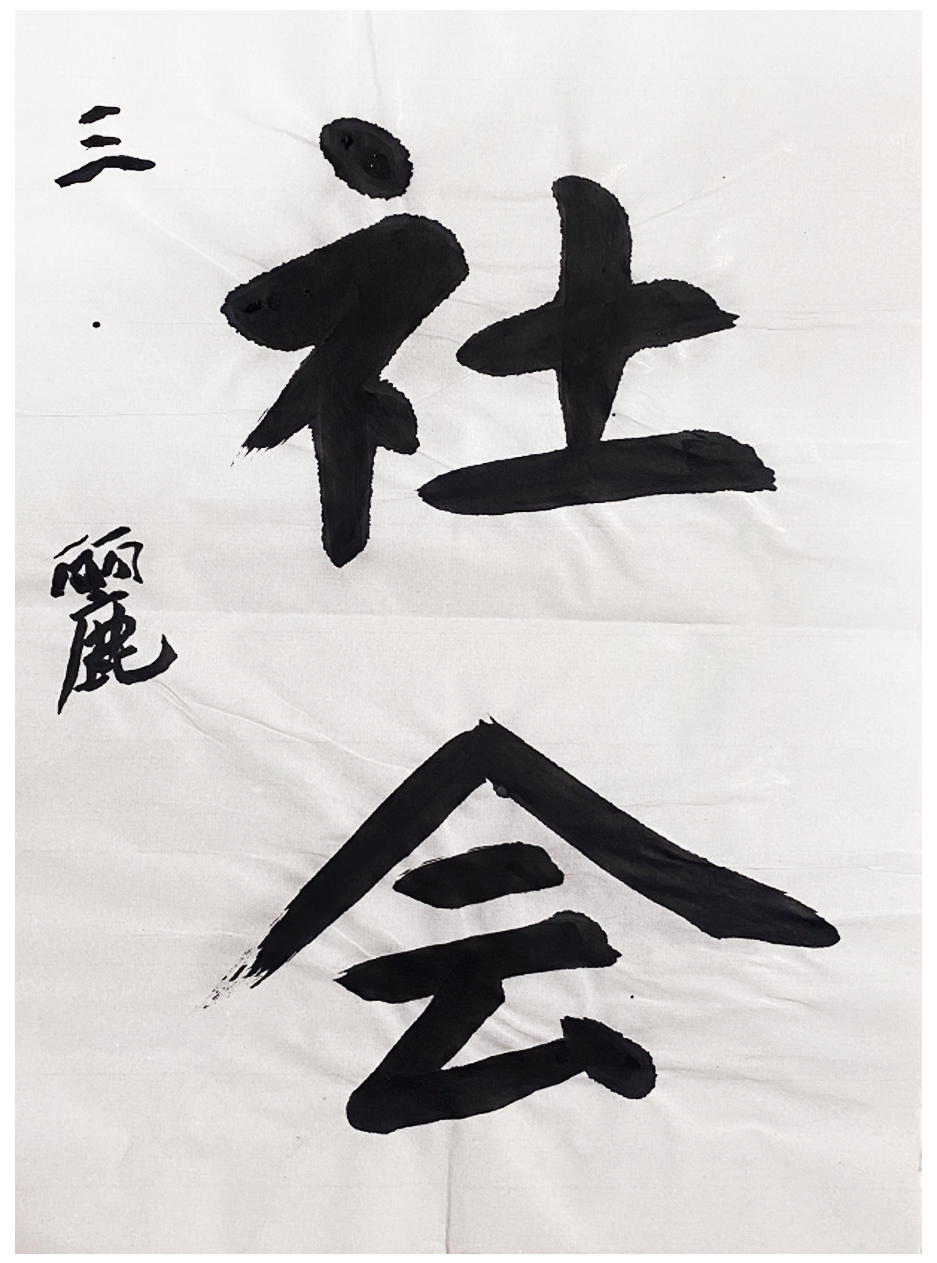 社会
三 麗